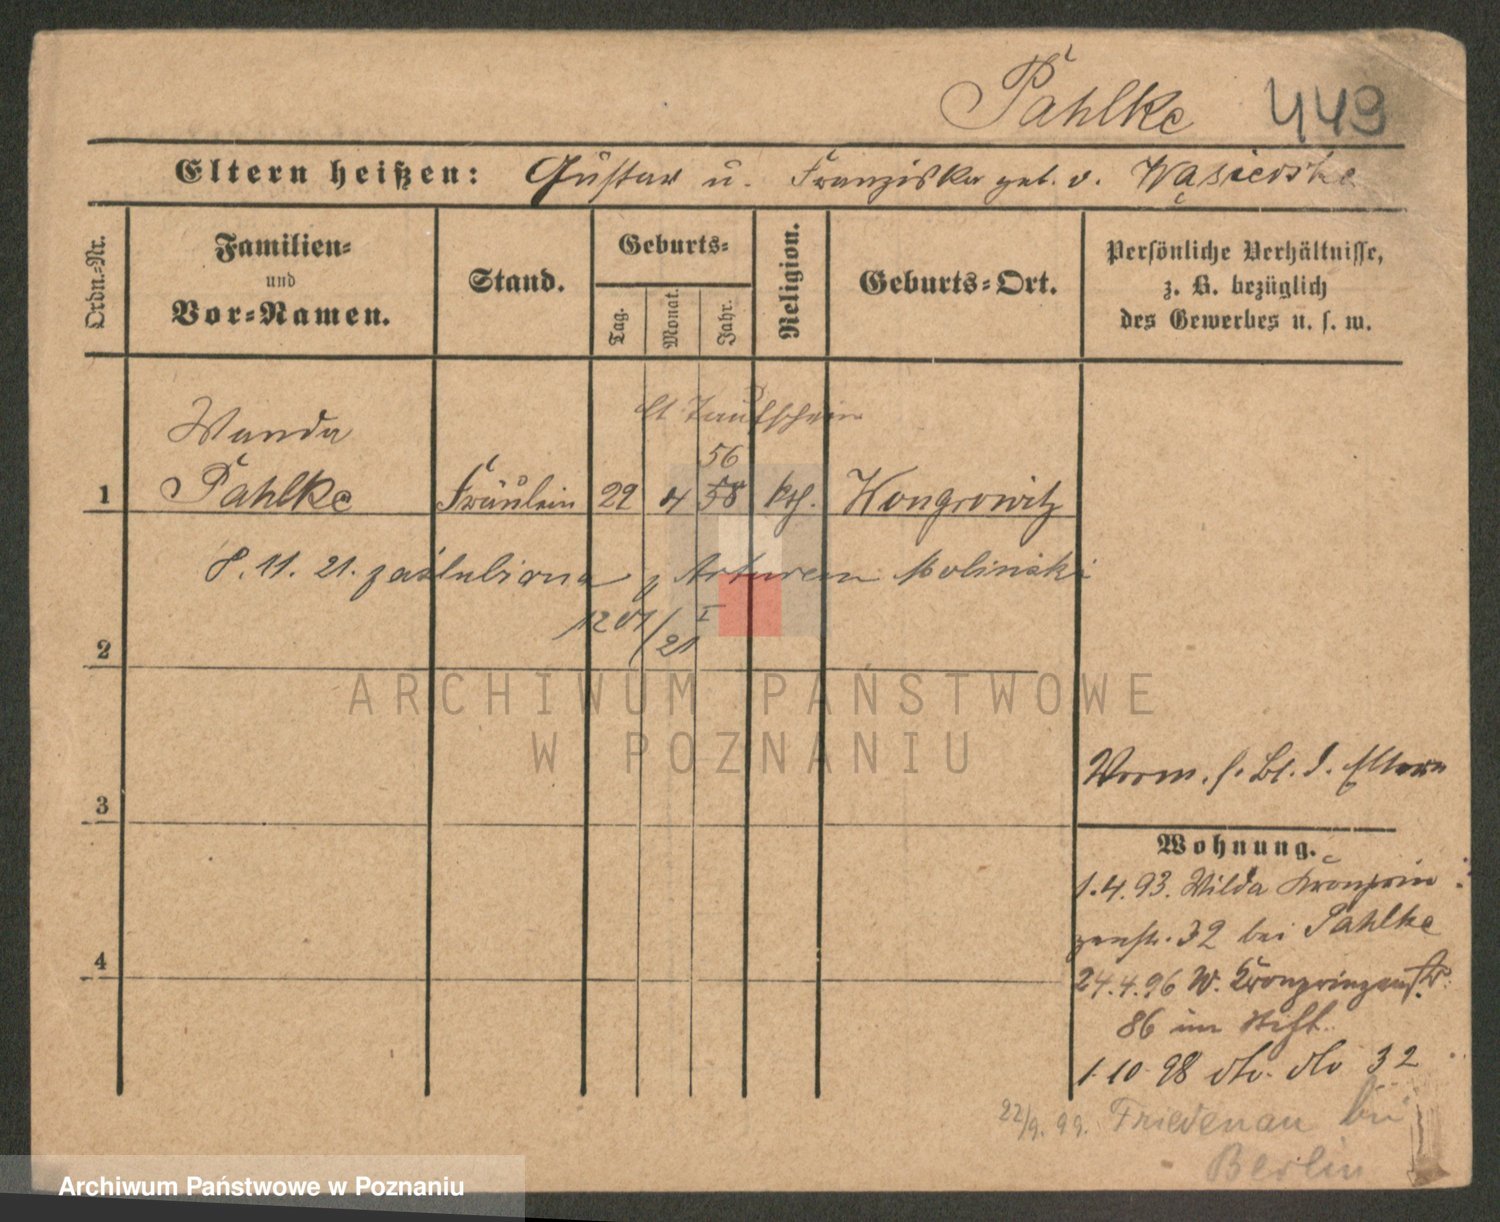 Pahlke 449
Eltern heißen: Gustav u. Franziska geb. v. Wąsierska
Ordn.-Nr.
Familien-
und
Vor-Namen.
Stand.
Geburts-
Tag.
Monat.
Jahr.
Religion.
Geburts-Ort.
Persönliche Verhältnisse,
z. B. bezüglich
des Gewerbes u. s. w.
lt Taufschein
Wanda
56
1 Pahlke Fräulein 22 4 58 kth. Wongrowitz
8. 11. 21. zaślubiona z Arturem Molinski
I
21
2
ARCHIWUM PAŃSTWOWE
W POZNANIU
Vorm. s. Bl. d. Eltern
3
Wohnung.
1.4.93. Wilda Kronprin
zenstr. 32 bei Pahlke
4
24.4.96 W. Kronprinzenstr.
86 im Stift.
1.10.98 dto. dto 32
22/9. 99. Friedenau bei
Berlin
Archiwum Państwowe w Poznaniu